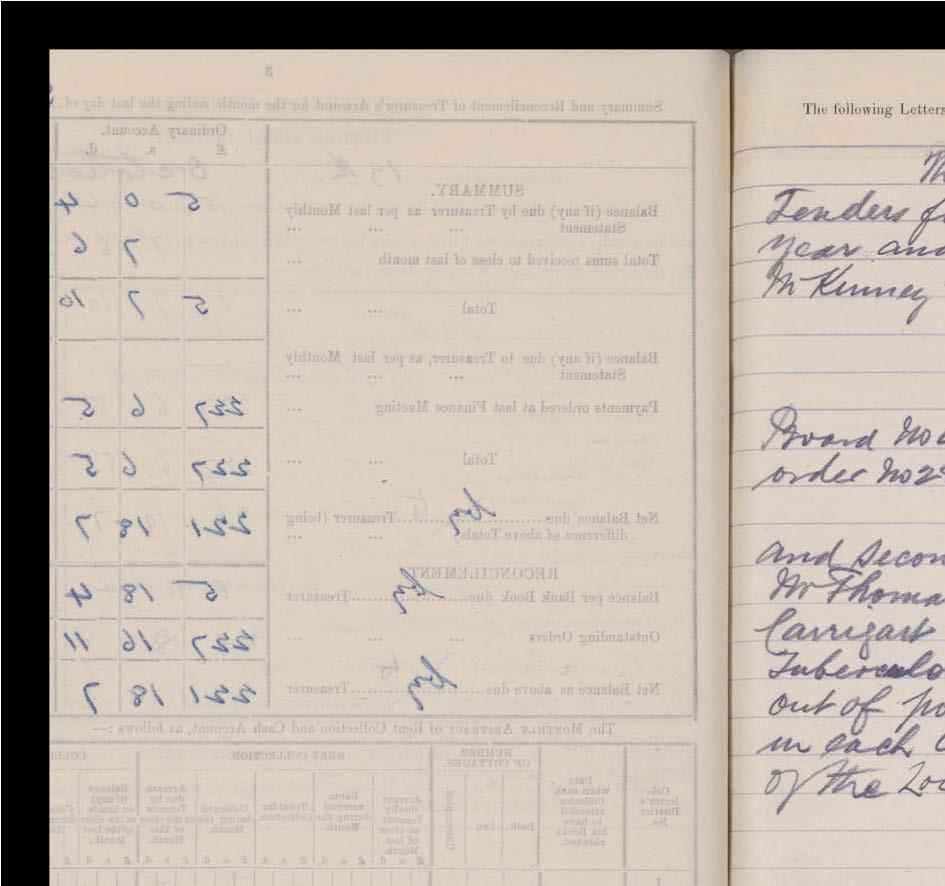 3
Summary and Reconcilement of Treasurer's Account for the month ending the last day of
Ordinary Account.
£ s. d.
SUMMARY.
Balance (if any) due by Treasurer as per last Monthly
Statement ... ... ... 5 0 4
Total sums received to close of last month ... 7 6
Total ... ... 5 7 10
Balance (if any) due to Treasurer, as per last Monthly
Statement ... ... ...
Payments ordered at last Finance Meeting ... 227 6 5
Total ... ... 227 6 5
Net Balance due by Treasurer (being
difference of above Totals) ... ... 221 18 7
RECONCILEMENT
Balance per Bank Book due by Treasurer 5 18 4
Outstanding Orders ... ... 227 16 11
Net Balance as above due by Treasurer 221 18 7
The Monthly Abstract of Rent Collection and Cash Account, as follows :—
NUMBER
OF COTTAGES.
RENT COLLECTION.
Col-
lector's
District
No.
Date
when each
Collector
attended
to have
his Books
checked.
Built.
Let.
Unoccupied
Arrears
due by
Tenants
at close
of last
Month.
Rents
accrued
during the
Month.
Total for
Collection.
Collected
during the
Month.
Arrears
due by
Tenants
at the close
of this
Month.
Balance
(if any)
in hands
at the close
of the last
Month.
£ s. d.
The following Letters
Tenders
year and
McKinney
Board No
order No
and secon
Mr Thoma
Carrigart
Tuberculo
out of po
in each
of the Loc